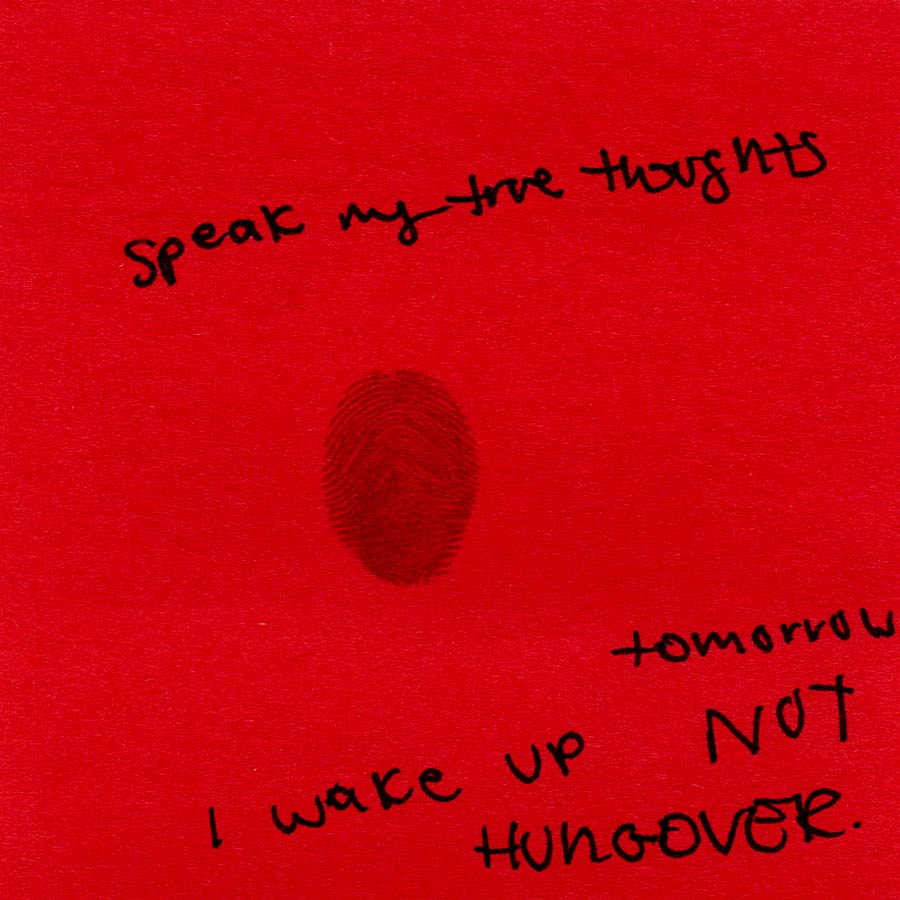 speak my true thoughts
tomorrow
I wake up NOT
HUNGOVER.